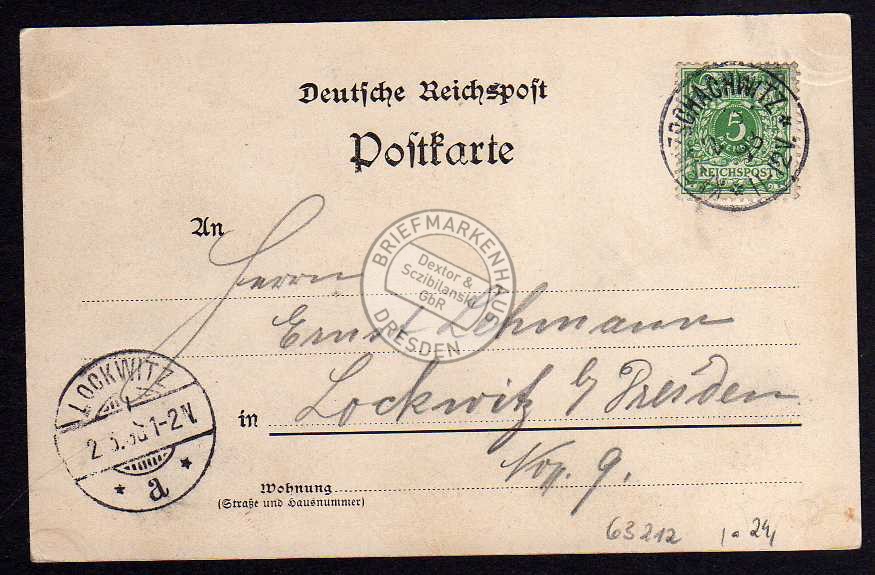 Deutsche Reichspost
Postkarte
5
REICHSPOST
ZSCHACHWITZ *
An
Herrn
Ernst Lehmann
in Lockwitz b/ Dresden
No. 9.
Wohnung
(Straße und Hausnummer)
LOCKWITZ
1-2 N.
* a *
BRIEFMARKENHAUS
Dextor &
Sczibilanski
GbR
DRESDEN
63212